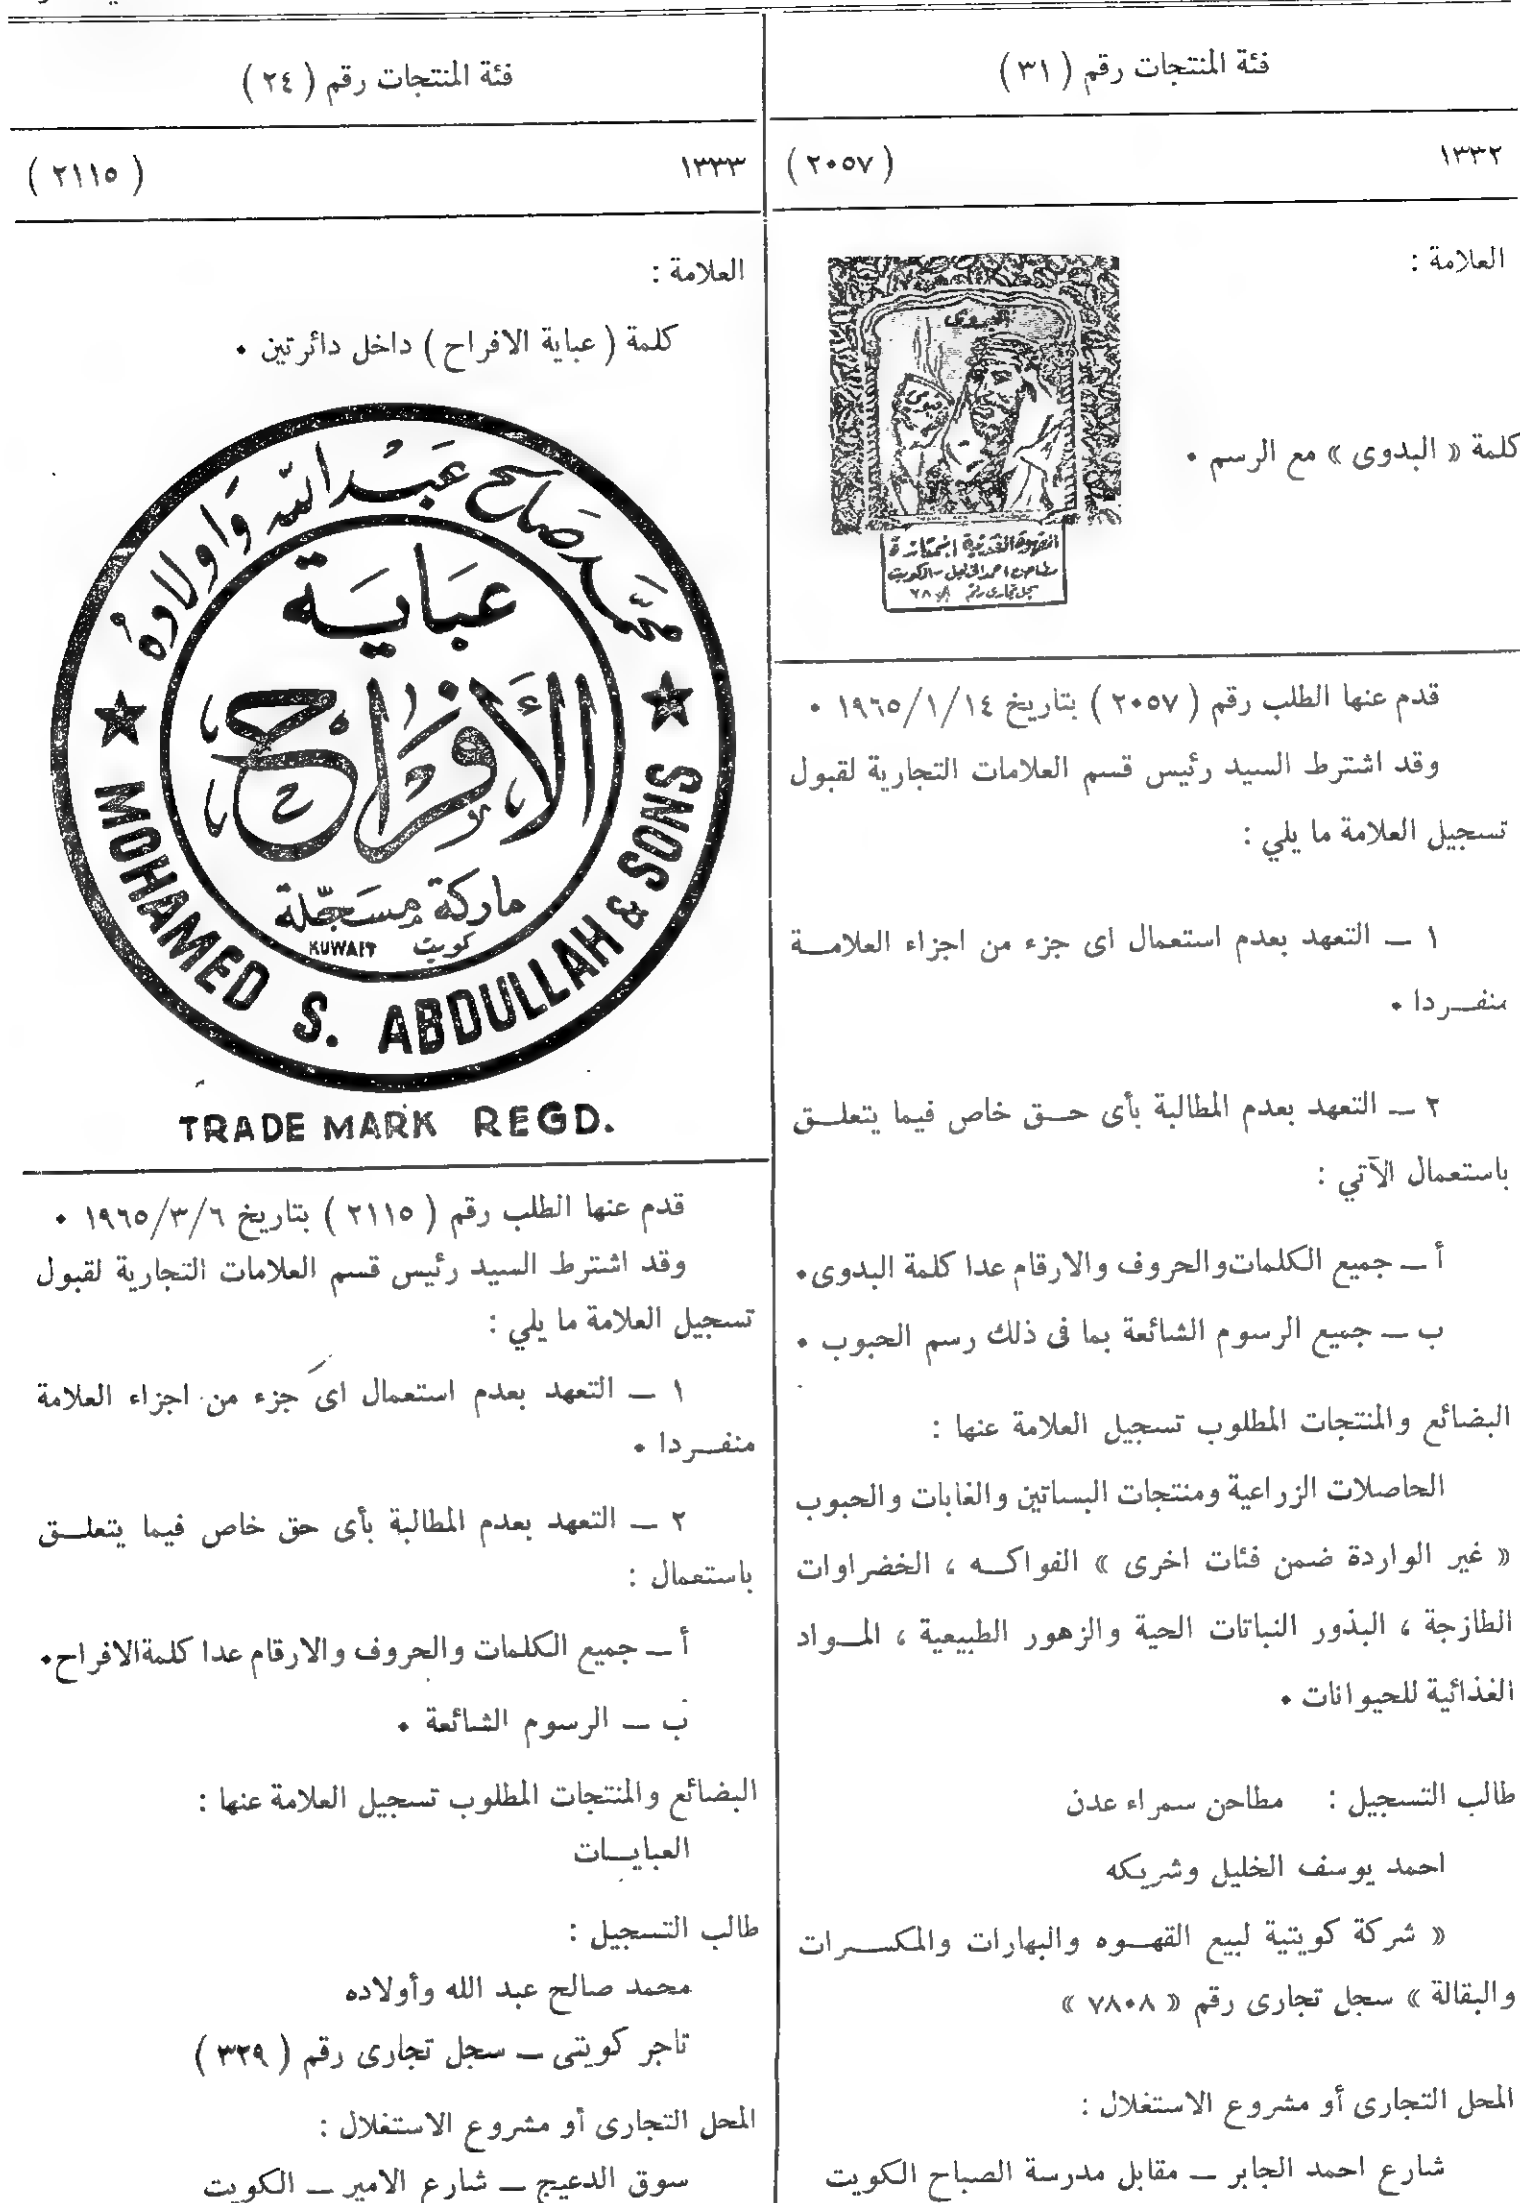 فئة المنتجات رقم ( ٣١ )
١٣٣٢ ( ٢٠٥٧ )
العلامة :
البدوى
كلمة « البدوى » مع الرسم ٠
سجل تجارى رقم ٧٨٠٨
قدم عنها الطلب رقم ( ٢٠٥٧ ) بتاريخ ١٩٦٥/١/١٤ ٠
وقد اشترط السيد رئيس قسم العلامات التجارية لقبول
تسجيل العلامة ما يلي :
١ ــ التعهد بعدم استعمال اى جزء من اجزاء العلامـــة
منفـــردا ٠
٢ ــ التعهد بعدم المطالبة بأى حــق خاص فيما يتعلــق
باستعمال الآتي :
أ ــ جميع الكلمات والحروف والارقام عدا كلمة البدوى٠
ب ــ جميع الرسوم الشائعة بما فى ذلك رسم الحبوب ٠
البضائع والمنتجات المطلوب تسجيل العلامة عنها :
الحاصلات الزراعية ومنتجات البساتين والغابات والحبوب
« غير الواردة ضمن فئات اخرى » الفواكــه ، الخضراوات
الطازجة ، البذور النباتات الحية والزهور الطبيعية ، المــواد
الغذائية للحيوانات ٠
طالب التسجيل : مطاحن سمراء عدن
احمد يوسف الخليل وشريكه
« شركة كويتية لبيع القهــوه والبهارات والمكســرات
والبقالة » سجل تجارى رقم « ٧٨٠٨ »
المحل التجارى أو مشروع الاستغلال :
شارع احمد الجابر ــ مقابل مدرسة الصباح الكويت
فئة المنتجات رقم ( ٢٤ )
١٣٣٣ ( ٢١١٥ )
العلامة :
كلمة ( عباية الافراح ) داخل دائرتين ٠
محمّد صَالح عَبْد اللّه وَاولادهُ
عَبَايَة
الأَفْرَاح
ماركة مسَجّلة
KUWAIT كويت
MOHAMED S. ABDULLAH & SONS
TRADE MARK REGD.
قدم عنها الطلب رقم ( ٢١١٥ ) بتاريخ ١٩٦٥/٣/٦ ٠
وقد اشترط السيد رئيس قسم العلامات التجارية لقبول
تسجيل العلامة ما يلي :
١ ــ التعهد بعدم استعمال اى جزء من اجزاء العلامة
منفــردا ٠
٢ ــ التعهد بعدم المطالبة بأى حق خاص فيما يتعلــق
باستعمال :
أ ــ جميع الكلمات والحروف والارقام عدا كلمةالافراح٠
ب ــ الرسوم الشائعة ٠
البضائع والمنتجات المطلوب تسجيل العلامة عنها :
العبايــات
طالب التسجيل :
محمد صالح عبد الله وأولاده
تاجر كويتى ــ سجل تجارى رقم ( ٣٢٩ )
المحل التجارى أو مشروع الاستغلال :
سوق الدعيج ــ شارع الامير ــ الكويت